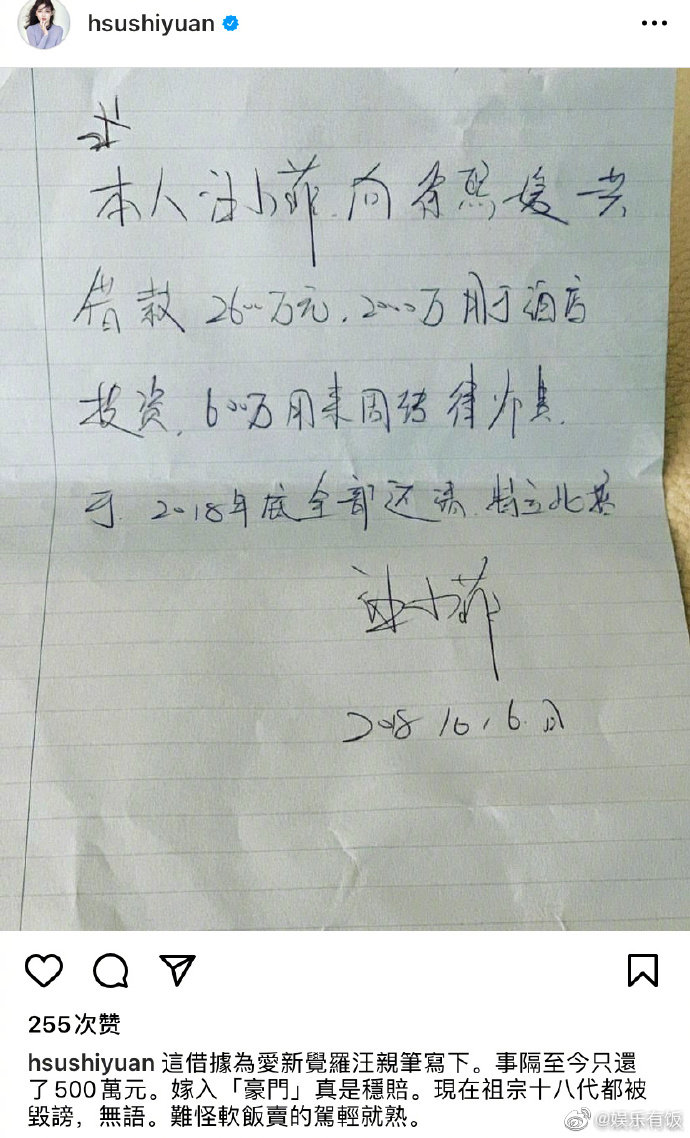 hsushiyuan
本人汪小菲.向徐熙媛共
借款2600万元.2000万用于酒店
投资.600万用来周转律师费.
于.2018年底全部还清.特立此
汪小菲
2018 10.6.日
255次赞
hsushiyuan 這借據為愛新覺羅汪親筆寫下。事隔至今只還
了500萬元。嫁入「豪門」真是穩賠。現在祖宗十八代都被
毀謗，無語。難怪軟飯賣的駕輕就熟。
@娱乐有饭